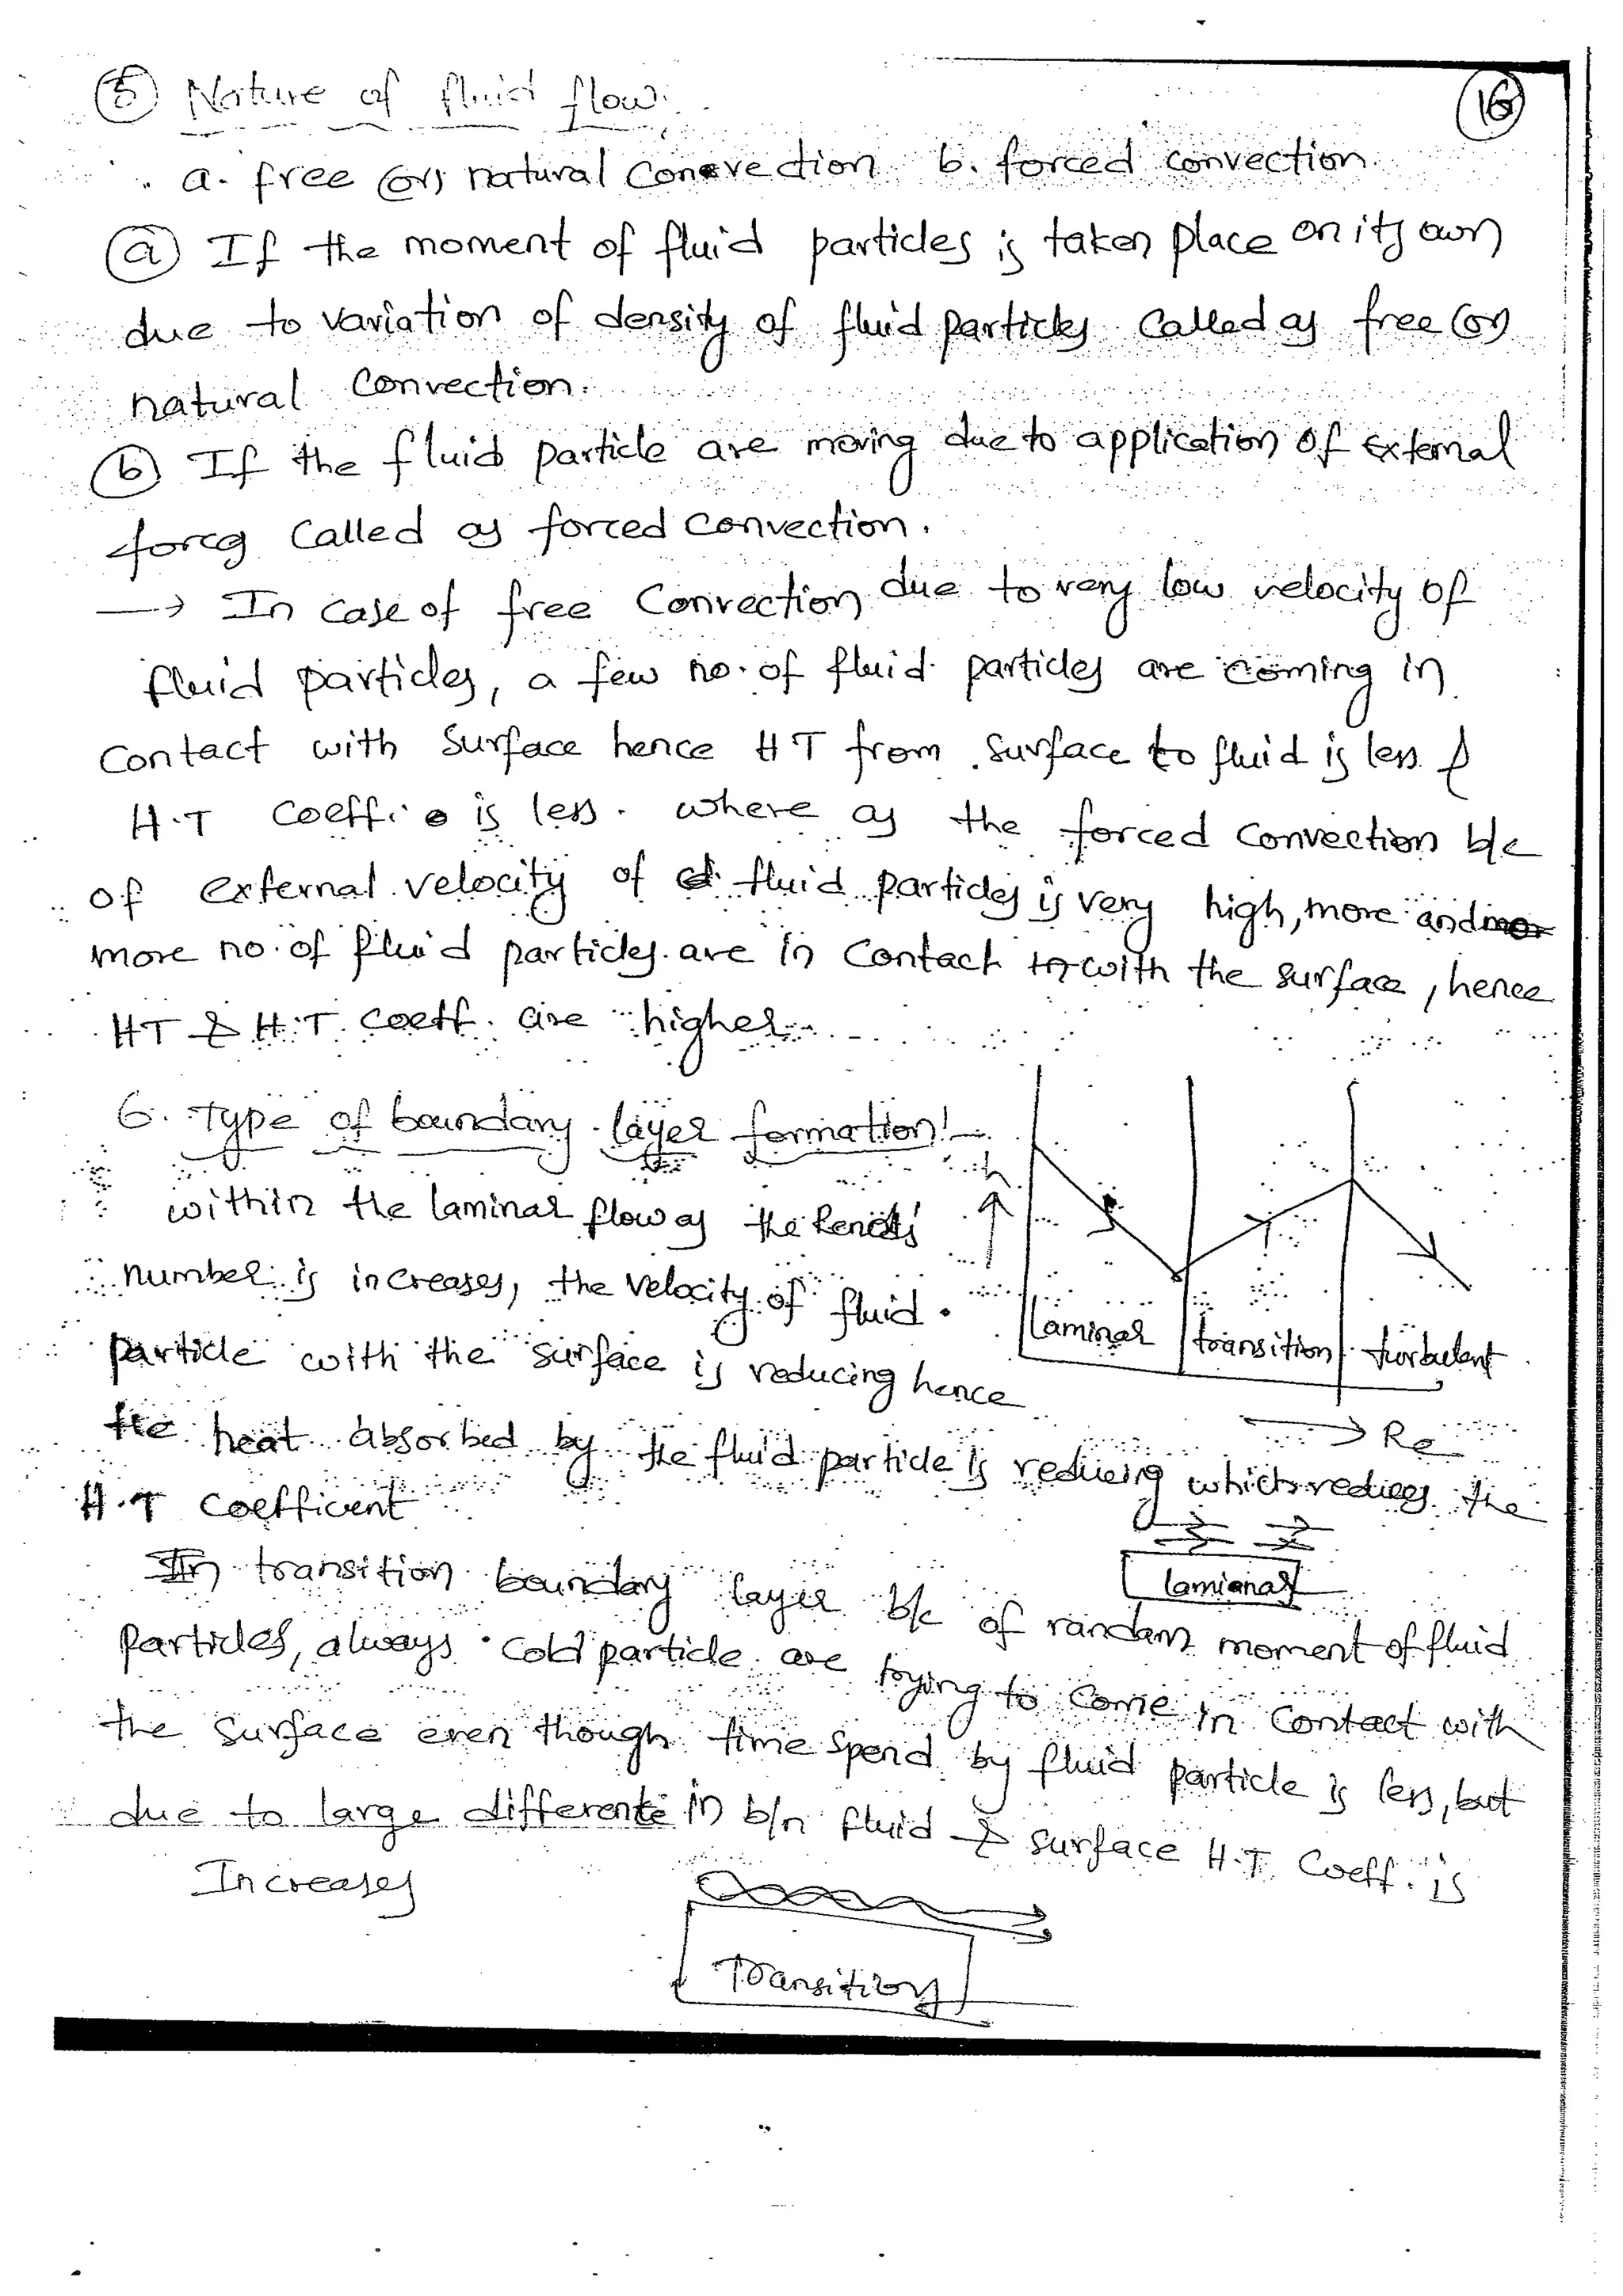 ⑤ Nature of fluid flow:
16
a. free (or) natural Convection b. forced convection.
ⓐ If the moment of fluid particles is taken place on its own
due to variation of density of fluid particles called as free (or)
natural convection.
ⓑ If the fluid particle are moving due to application of External
forcg called as forced convection.
→ In case of free Convection due to very low velocity of
fluid particles, a few no. of fluid particles are coming in
contact with surface hence HT from surface to fluid is less &
H.T coeffi. is less. where as the forced convection b/c
of external velocity of fluid particles is very high, more and
more no. of fluid particles are in contact with the surface, hence
HT & H.T. coeff. are higher.
6. Type of boundary layer formation:-
within the laminar flow as the Renolds'
number is increases, the velocity of fluid
particle with the surface is reducing hence
the heat absorbed by the fluid particle is reducing which reduces the
H.T coefficient
h
laminar transition turbulent
→ Re
lamianar
In transition boundary layer b/c of random moment of fluid
particles, always cold particle are trying to come in contact with
the surface even though time spend by fluid particle is less, but
due to large difference in b/n fluid & surface H.T. coeff. is
Increases
Transition